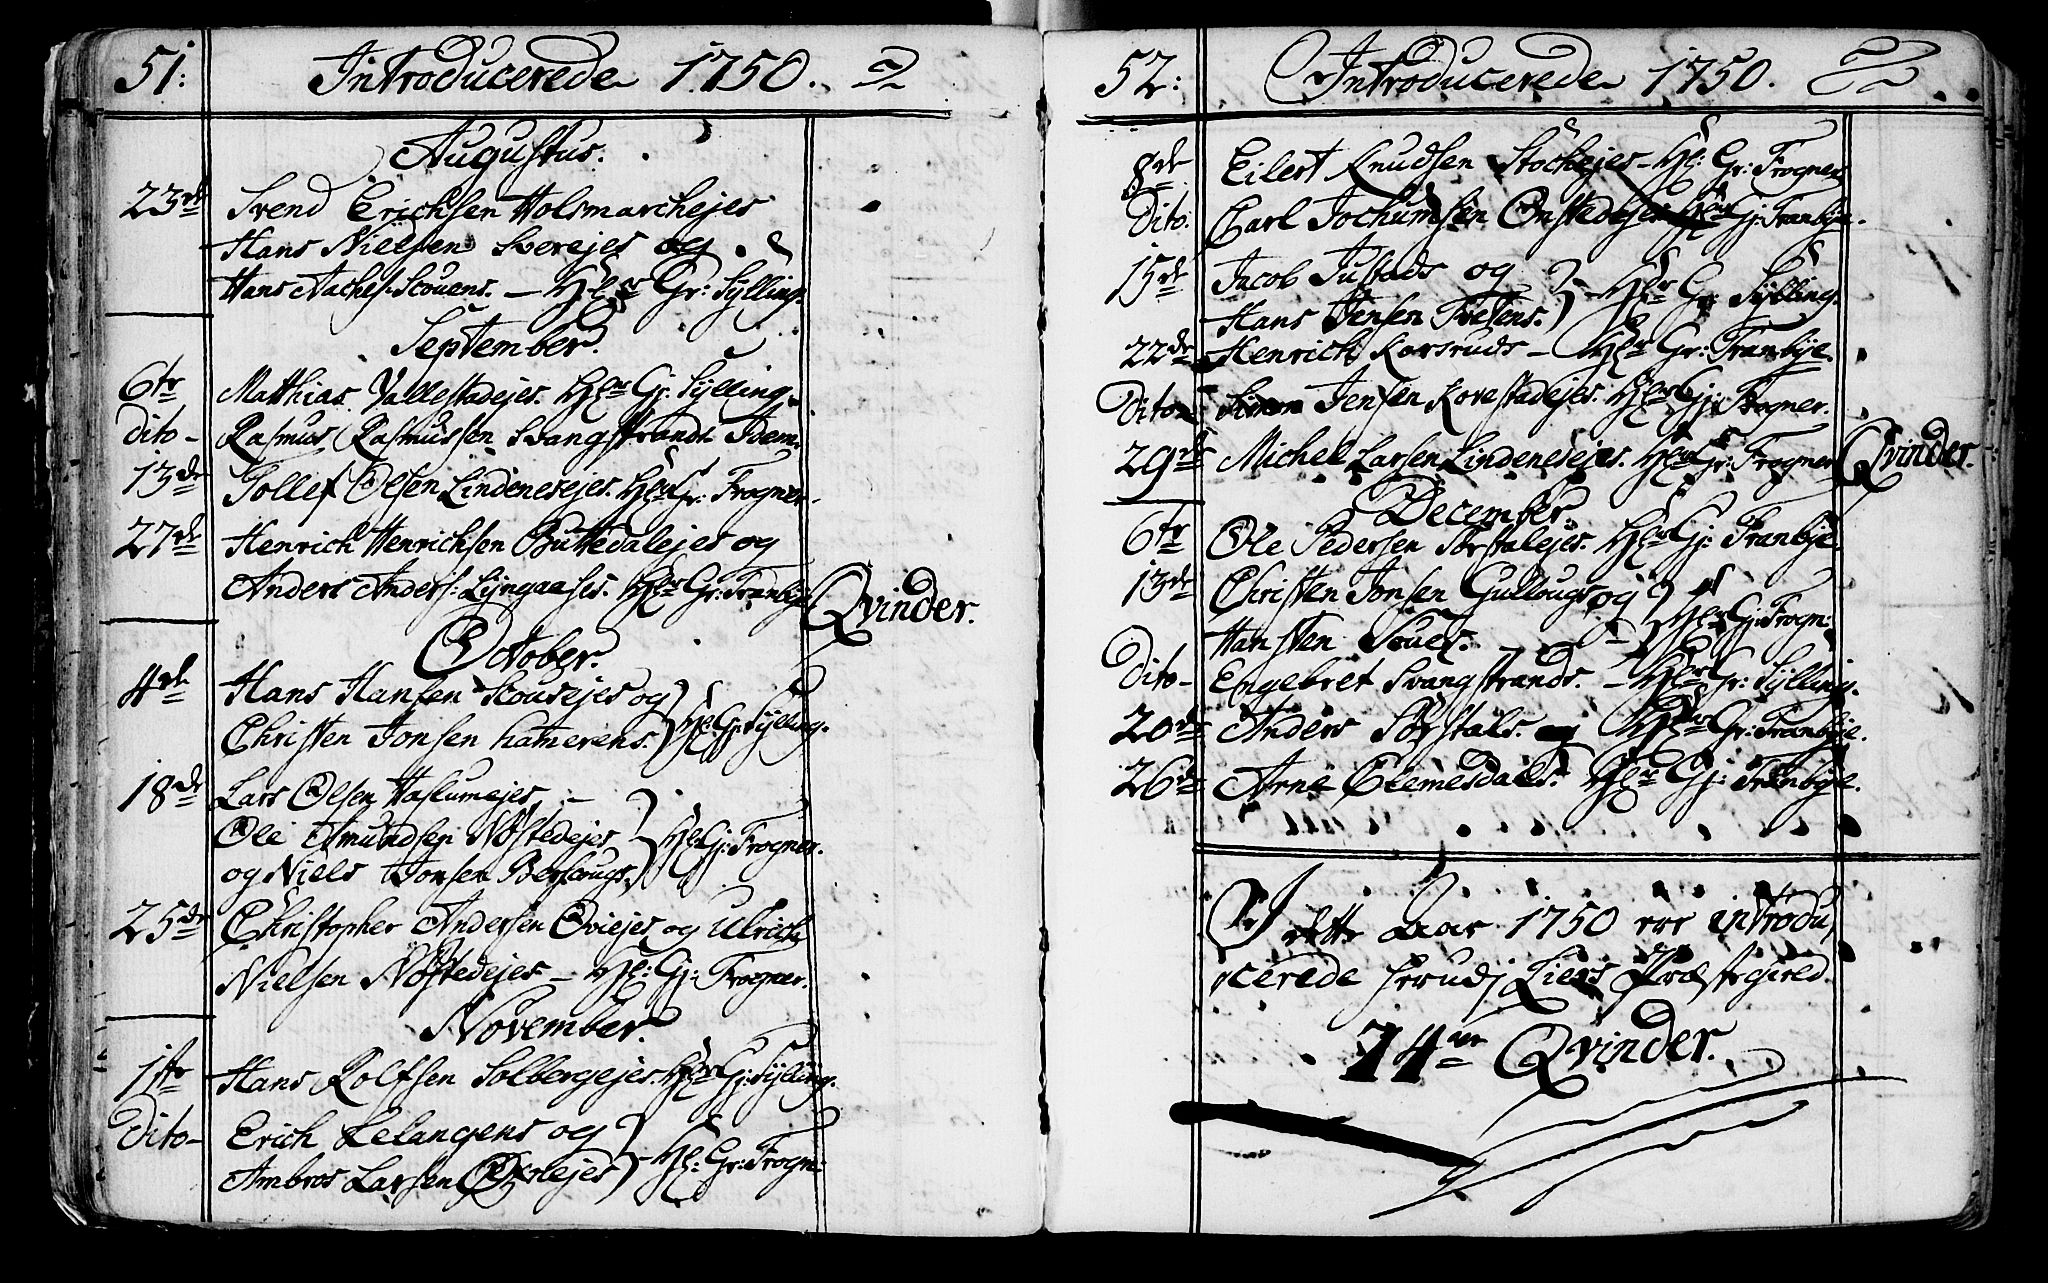 51:
Introducerede 1750.
Augustus.
23de Svend Erichsen Holsmarchejes
Hans Nielsen Lverejes og
Hans Aches. Scouens. — Hl:er Gr: Sylling.
September.
6te Matthias Vallestadejes. Hl:er Gj: Sylling.
dito- Rasmus Rasmussen Svangstrands Idem.
13de Tollef Olsen Lindenesejes. Hl:er Gr: Frogner.
27de Henrich Henrichsen Buttedalejes og
Anders Anders: Lyngaases. Hl:er Gr: Tranbye
Qvinder.
October.
4de Hans Hansen Scousejes og
Christen Jonsen hamerens. Hl: Gj: Sylling.
18de Lars Olsen Haslumejes
Ole Amundsen Nøstedejes
og Niels Jonsen Berschougs. Hl: Gj: Frogner.
25de Christopher Andersen Oviejes og Ulrich
Nielsen Nøstedejes — Hl: Gj: Frogner.
November.
1ste Hans Rolfsen Solbergejes. Hl:er Gj: Sylling.
Dito- Erich Lelangens og
Ambros Larsen Øverejes — Hl: Gr: Frogn:
52:
Introducerede 1750.
8de Eilert Knudsen Stochejes — Hl: Gr: Frogner
Dito: Carl Jochumsen Onstedejes Hl:er Gj: Tranbye.
15de Jacob Justads og
Hans Jensen Tvetens. — Hl:er Gr: Sylling.
22de Henrich Korsruds — Hl:er Gr: Tranbye.
Dito Simon Jensen Kovestadejes. Hl:er Gj: Frogner.
29de Michel Larsen Lindenesejes. Hl:er Gr: Frogner
Qvinder.
December
6te Ole Pedersen Sørstalejes. Hl:er Gj: Tranbye.
13de Christen Jonsen Gullougs og
Hansten Foues. — Hl:er Gj: Frogn:
Dito- Engebret Svangstrands. — Hl:er Gr: Sylling.
20de Anders Sørstals. Hl:er Gr: Tranbye.
26de Arne Clemesdals. Hl:er Gj: Tranbye.
I dette Aar 1750 ere introdu
cerede herudj Liers Præstegield.
74 Qvinder.